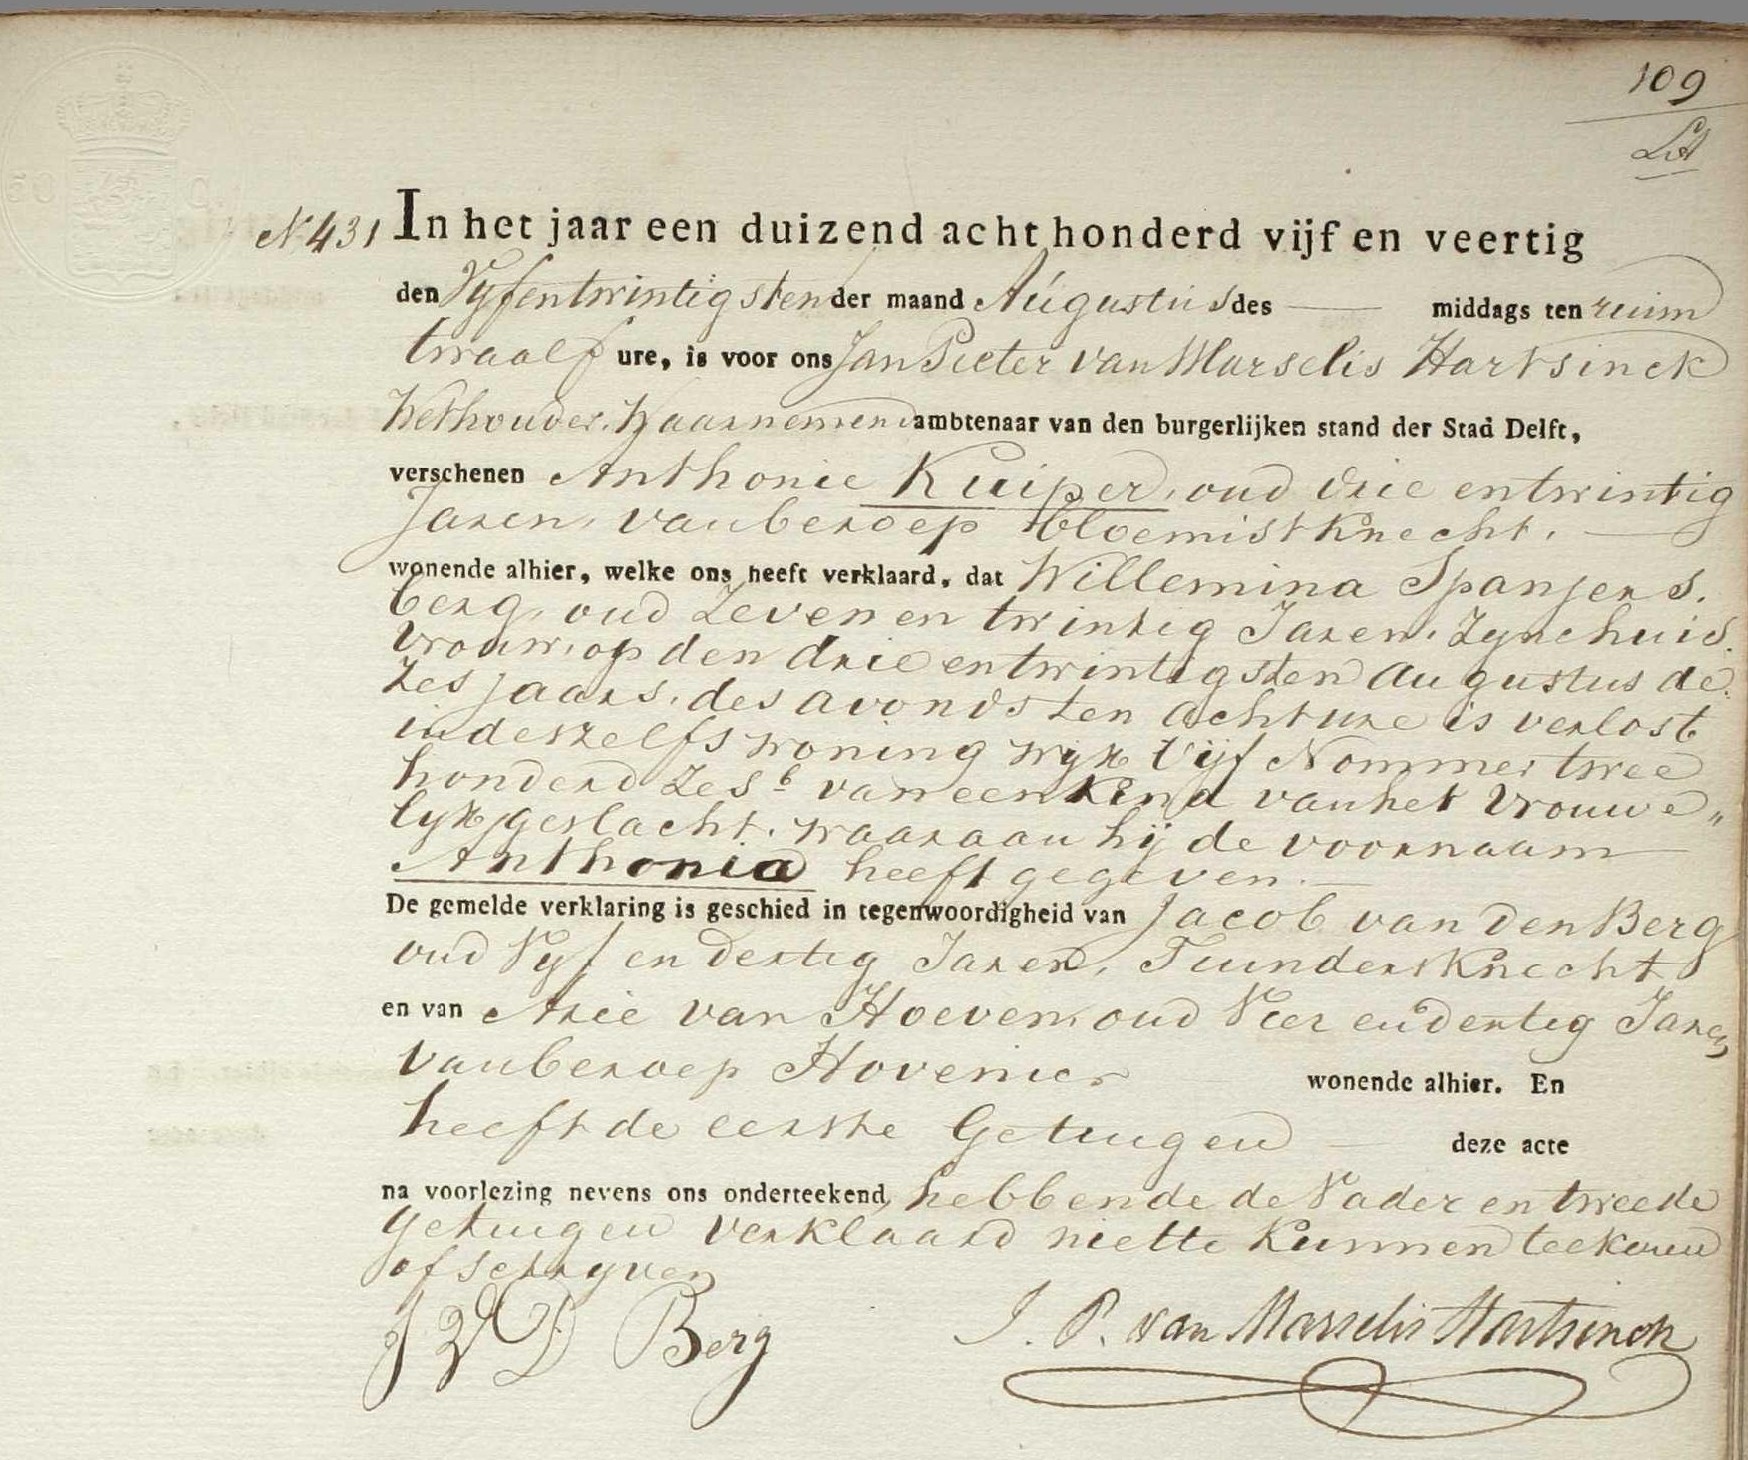 109
N 431 In het jaar een duizend acht honderd vijf en veertig
den Vyfentwintigsten der maand Augustus des middags ten ruim
twaalf ure, is voor ons Jan Pieter van Marselis Hartsinck
Wethouder, Waarnemend ambtenaar van den burgerlijken stand der Stad Delft,
verschenen Anthonie Kuiper, oud drie entwintig
Jaren, van beroep bloemistknecht.
wonende alhier, welke ons heeft verklaard, dat Willemina Spanjers,
berg, oud Zeven en twintig Jaren, Zyne huis,
vrouw, op den drie entwintigsten Augustus de,
zes jaars, des avonds ten acht ure is verlost
in deszelfs woning wyk Vijf Nommer twee
honderd Zes b van een kind van het Vrouwe„
lyk geslacht, waaraan hij de voornaam
Anthonia heeft gegeven.
De gemelde verklaring is geschied in tegenwoordigheid van Jacob van den Berg
oud Vyf en dertig Jaren, Tuinders Knecht
en van Arie van Hoeven, oud Vier en dertig Jaren
van beroep Hovenier wonende alhier. En
heeft de eerste Getuigen deze acte
na voorlezing nevens ons onderteekend, hebbende de Vader en tweede
getuigen verklaard niet te kunnen teekenen
of schryven
J V D Berg
J. P. van Marselis Hartsinck